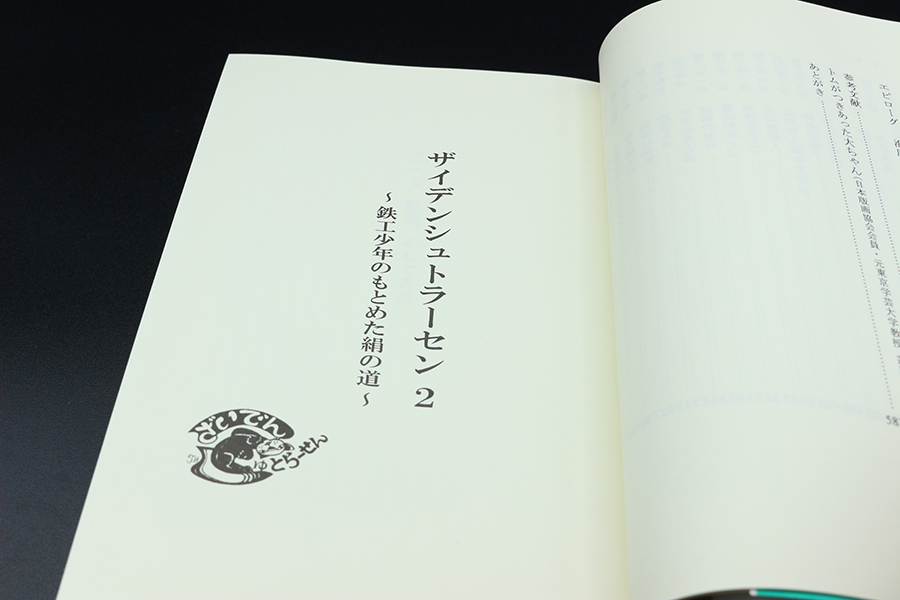 エピローグ
参考文献
トムがつきあった大ちゃん(日本版画協会会員・元東京学芸大学教授
あとがき
587
ザイデンシュトラーセン 2
~鉄工少年のもとめた絹の道~
ざいでん
ゅとらーせん